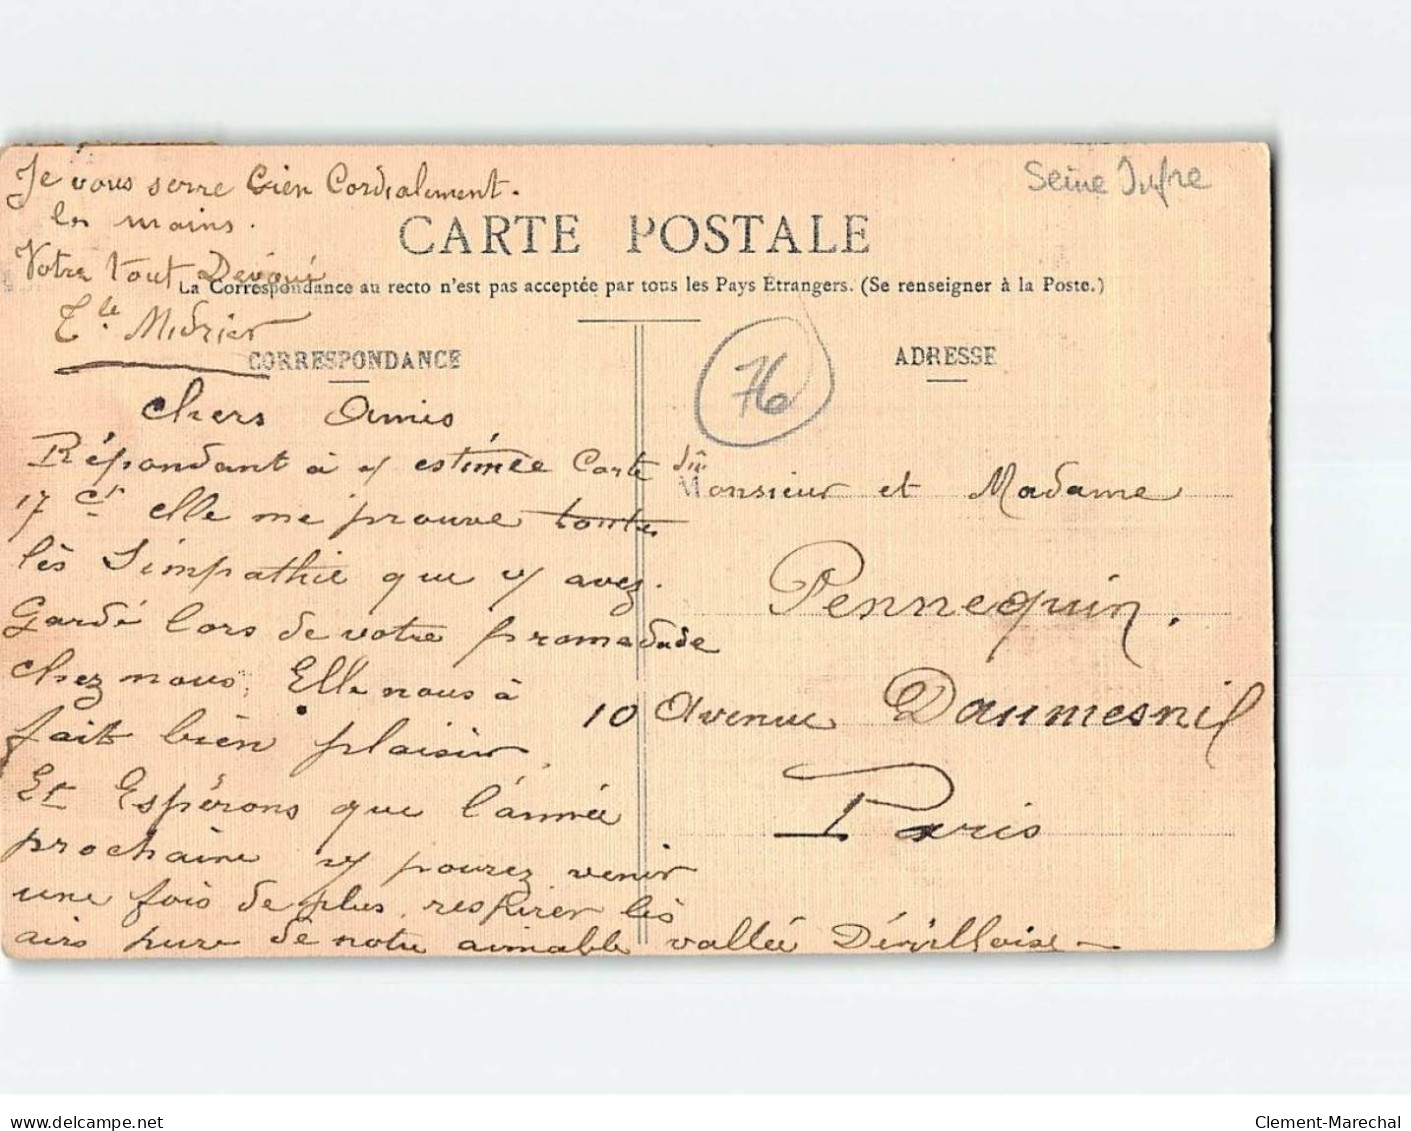 Je vous serre bien Cordialement.
les mains.
Votre tout Dévoué
Seine Infre
CARTE POSTALE
La Correspondance au recto n'est pas acceptée par tous les Pays Étrangers. (Se renseigner à la Poste.)
CORRESPONDANCE
chers Amis
Répondant à v/ estimée Carte du
17 ct elle me prouve toutes
lès Simpathie que v/ avez.
Gardé lors de votre promadade
chez nous, Elle nous à
fait bien plaisir,
Et Espérons que l'année
prochaine v/ pourez venir
une fois de plus, respirer lès
airs pure de notre aimable vallée Dévilloise
76
ADRESSE
Monsieur et Madame
Pennequin,
10 Avenue Daumesnil
Paris
www.delcampe.net
Clement-Marechal